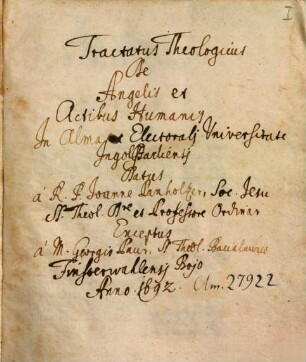 I
Tractatus Theologicus
De
Angelis et
Actibus Humanis
In Alma et Electorali Universitate
Ingolstadiensj
Datus
à R. P. Joanne Banholzer, Soc. Jesu
SS. Theol. Dre et Professore Ordinar
Exceptus
à M. Georgio Paur, SS. Theol. Baccalaureo
Boio
Anno. 1692. Clm. 27922